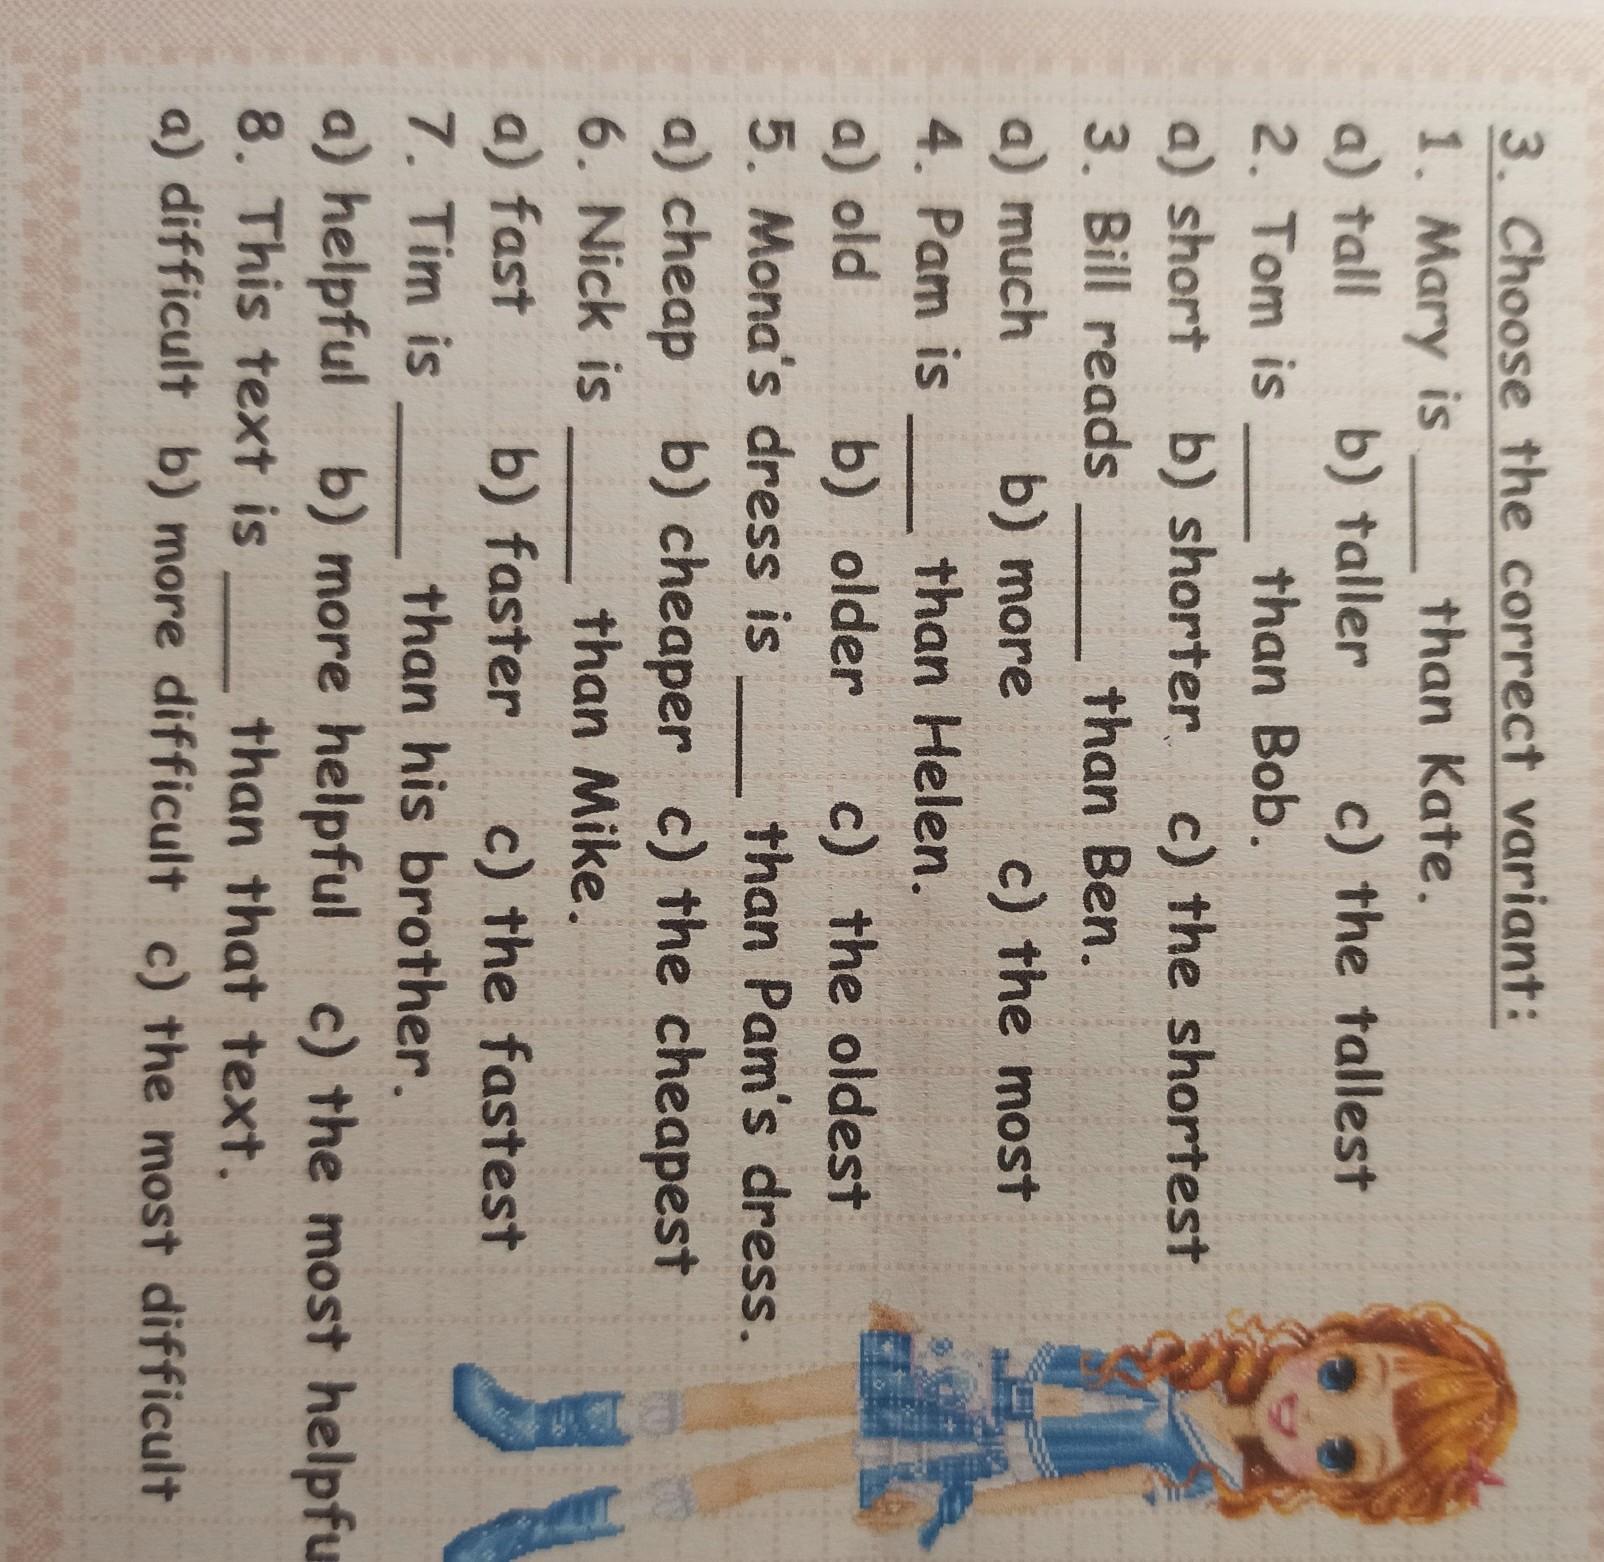 3. Choose the correct variant:
1. Mary is ____ than Kate.
a) tall b) taller c) the tallest
2. Tom is ____ than Bob.
a) short b) shorter c) the shortest
3. Bill reads _____ than Ben.
a) much b) more c) the most
4. Pam is ____ than Helen.
a) old b) older c) the oldest
5. Mona's dress is ____ than Pam's dress.
a) cheap b) cheaper c) the cheapest
6. Nick is _____ than Mike.
a) fast b) faster c) the fastest
7. Tim is _____ than his brother.
a) helpful b) more helpful c) the most helpfu
8. This text is ____ than that text.
a) difficult b) more difficult c) the most difficult